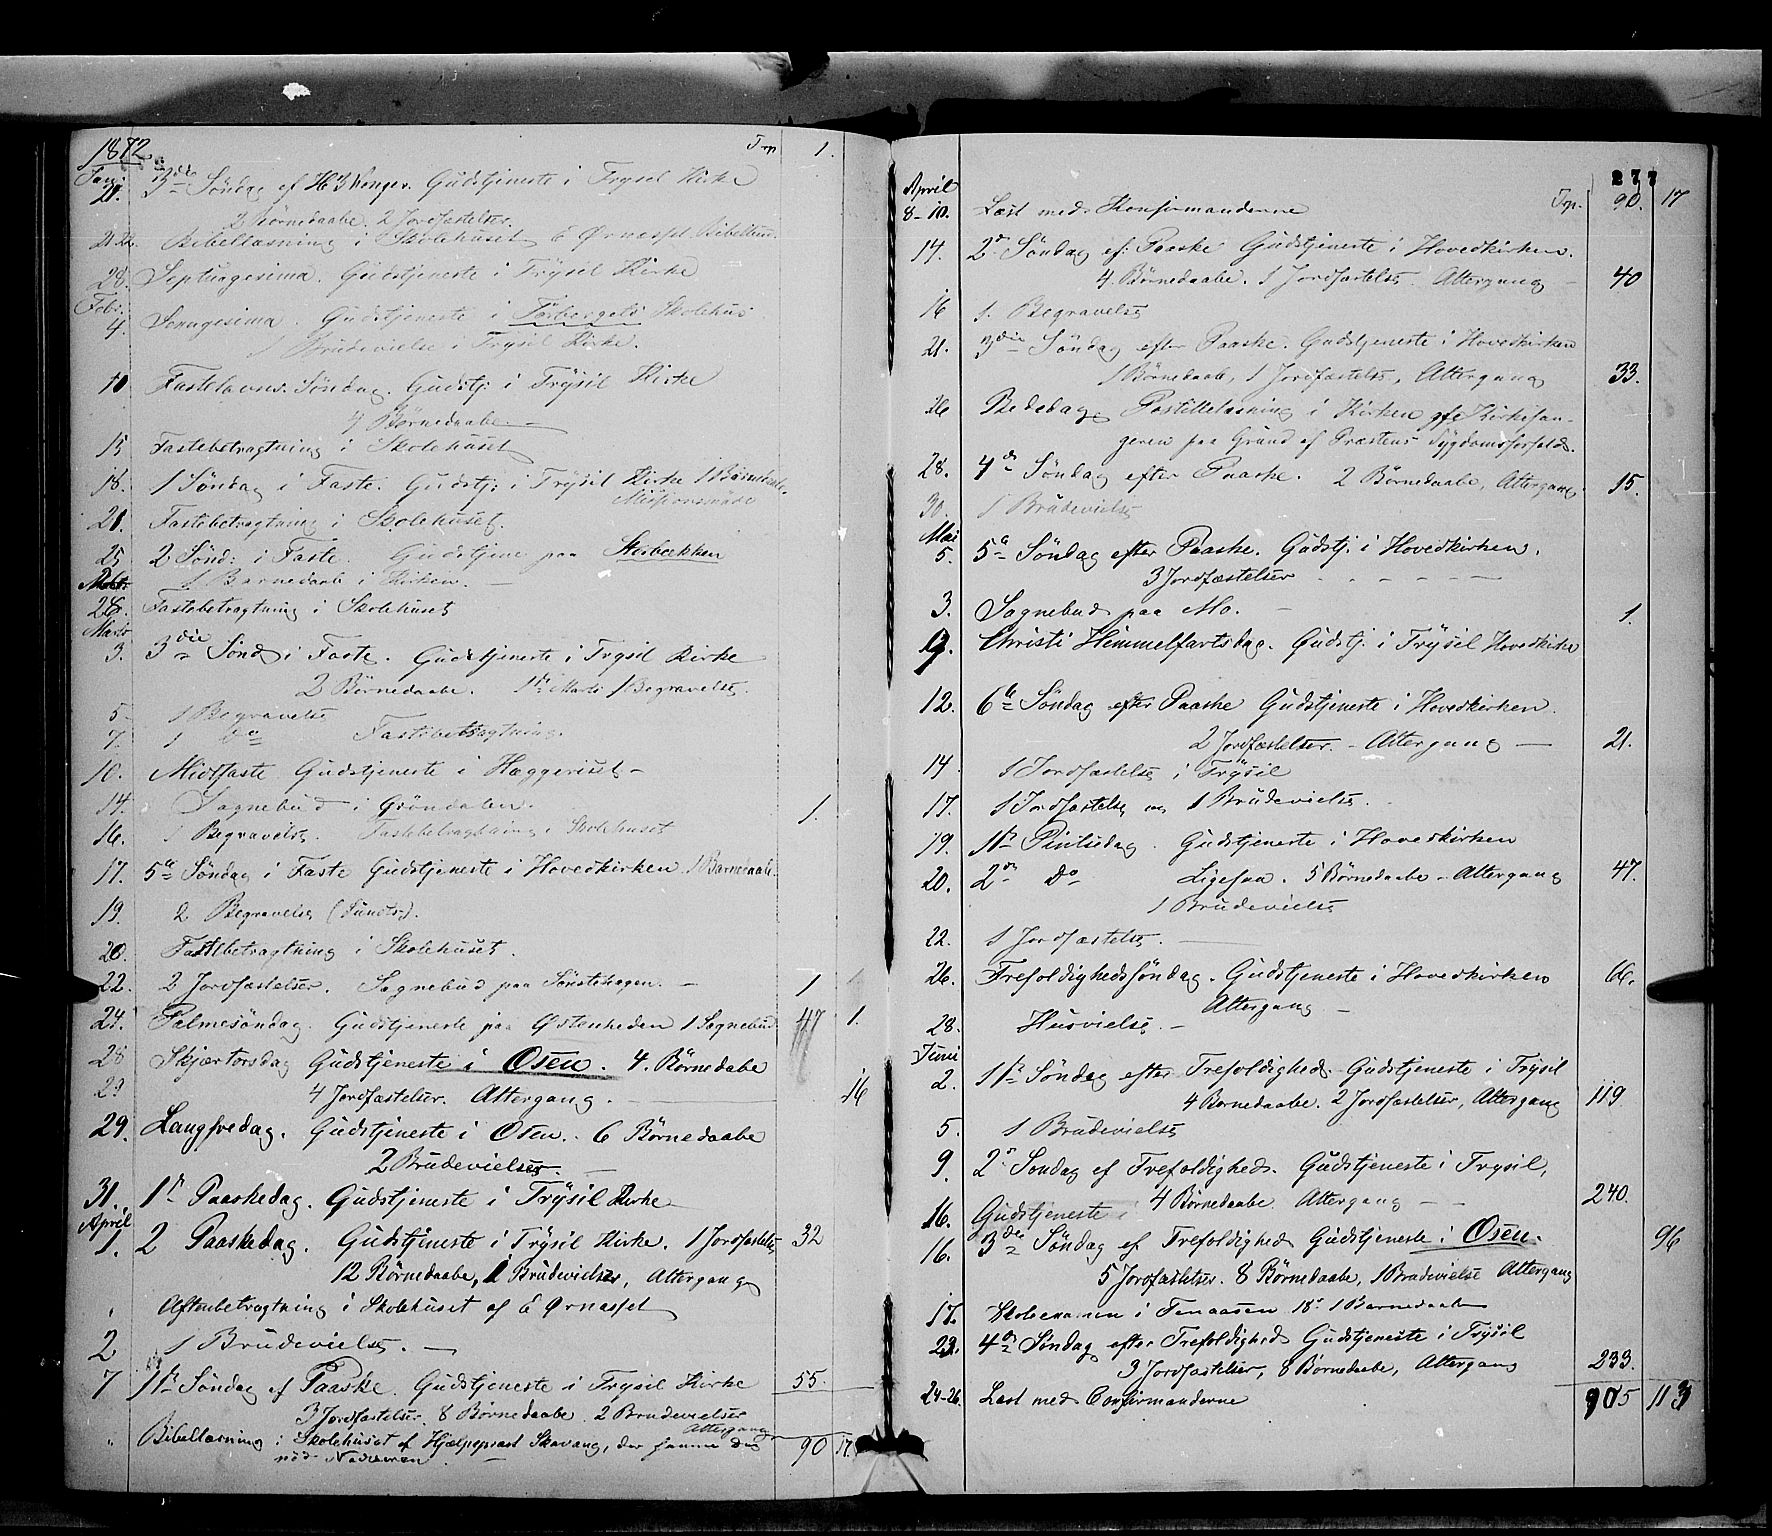 1872. Trp. 1.
Jan: 21. 3die Søndag ef H 3 Konger. Gudstjeneste i Trysil Kirke
2 Børnedaabe. 2 Jordfæstelser.
21 22. Bibellæsning i Skolehuset
28. Septuagesima. Gudstjeneste i Trysil Kirke
Febr. 4. Gudstjeneste i Færbergets Skolehus
1 Brudevielse i Trysil Kirke.
10 Fastelavns Søndag. Gudstj: i Trysil Kirke
4 Børnedaabe. —
15 Fastebetragtning i Skolehuset
18. 1 Søndag i Faste. Gudstj: i Trysil Kirke 1 Barnedaab.
Missionsmøde
21. Fastebetragtning i Skolehuset.
25 2 Sønd: i Faste. Gudstjene paa Støvbækken
1 Barnedaab i Kirken. —
28. Fastebetragtning i Skolehuset
Marts 3. 3die Sønd i Faste. Gudstjeneste i Trysil Kirke
2 Børnedaabe. 1ste Marts 1 Begravelse.
5 1 Begravelse
7. 1 do Fastebetragtning.
10. Midfaste Gudstjeneste i Hæggeriset —
14. Sognebud i Grøndalen. 1.
16. 1 Begravelse. Fastebetragtning i Skolehuset
17. 5te Søndag i Faste Gudstjeneste i Hovedkirken 1 Barnedaab.
19. 2 Begravelse
20. Fastebetragtning i Skolehuset.
22. 2 Jordfæstelser. Sognebud paa Sønstehagen. — 1
24. Palmesøndag. Gudstjeneste paa Østenheden 1 Sognebud 47 1.
28 Skjærtorsdag Gudstjeneste i Osen. 4 Børnedaabe
29 4 Jordfæstelser. Altergang. — 16
29. Langfredag. Gudstjeneste i Osen. 6 Børnedaabe
2 Brudevielser. —
31. 1ste Paaskedag. Gudstjeneste i Trysil Kirke
April 1. 2 Paaskedag. Gudstjeneste i Trysil Kirke. 1 Jordfæstelse 32
12 Børnedaabe, 1 Brudevielser, Altergang
" Aftenbetragtning i Skolehuset af E
2 1 Brudevielse. —
7 1ste Søndag ef Paaske. Gudstjeneste i Trysil Kirke 55.
3 Jordfæstelser. 8 Børnedaabe. 2 Brudevielser
Altergang
" Bibellæsning i Skolehuset af Hjælpepræst Skavang, der samme Dag 90 17.
nød Nadveren. —
277
April 8-10. Læst med Konfirmanderne Trp. 90. 17
14. 2den Søndag ef: Paaske Gudstjeneste i Hovedkirken.
4 Børnedaabe. 1 Jordfæstelse. Altergang — 40
16 1. Begravelse
21. 3die Søndag efter Paaske. Gudstjeneste i Hovedkirken
1 Børnedaab, 1 Jordfæstelse, Altergang 33.
26 Bededag. Postillelæsning i Kirken af Kirkesan-
geren paa Grund af Præstens Sygdomsforfald.
28. 4de Søndag efter Paaske. 2 Børnedaabe, Altergang. 15.
30. 1 Brudevielse
Mai 5. 5te Søndag efter Paaske. Gudstj. i Hovedkirken.
3 Jordfæstelser
3. Sognebud paa Mo. — 1.
9. Christi Himmelfartsdag. Gudstj. i Trysil Hovedkirke
12. 6te Søndag efter Paaske Gudstjeneste i Hovedkirken.
2 Jordfæstelser. — Altergang — 21.
14. 1 Jordfæstelse i Trysil
17. 1 Jordfæstelse og 1 Brudevielse.
19. 1ste Pintsedag. Gudstjeneste i Hovedkirken
20. 2den do Ligesaa. 5 Børnedaabe — Altergang 47.
1 Brudevielse
22. 1 Jordfæstelse. —
26. Trefoldighedssøndag. Gudstjeneste i Hovedkirken 66.
Altergang —
28. Husvielse. —
Juni 2. 1ste Søndag efter Trefoldighed. Gudstjeneste i Trysil
4 Børnedaabe. 2 Jordfæstelser, Altergang 119.
5. 1 Brudevielse
9. 2den Søndag ef Trefoldighed. Gudstjeneste i Trysil,
4 Børnedaabe. Altergang — 240.
16. Gudstjeneste i
16. 3die Søndag ef Trefoldighed Gudstjeneste i Osen. 96
5 Jordfæstelser. 8 Børnedaabe, 1 Brudevielse Altergang
17. Skoleexamen i Tenaasen 18de 1 Barnedaab
23. 4de Søndag efter Trefoldighed Gudstjeneste i Trysil
3 Jordfæstelser, 8 Børnedaabe, Altergang 233.
24-26. Læst med Confirmanderne 905 113